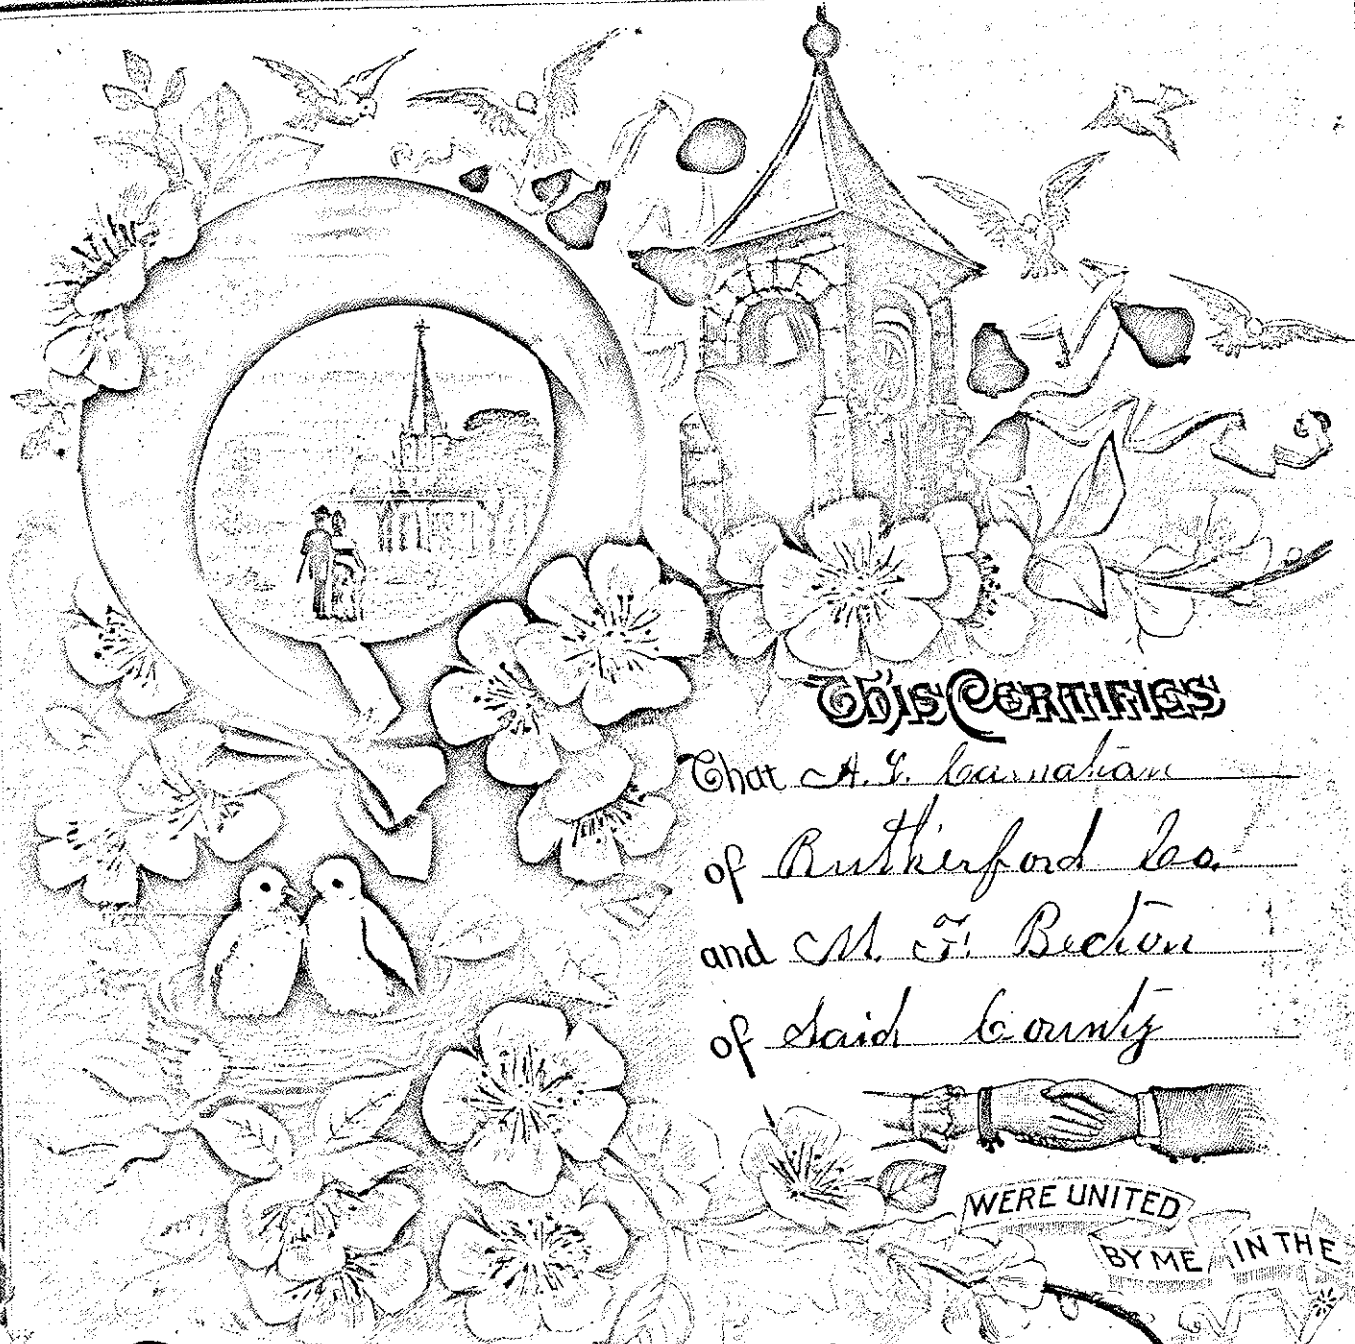 This Certifies
That A. L. Carnahan
of Rutherford Co.
and M. F. Becton
of Said County
WERE UNITED
BY ME IN THE